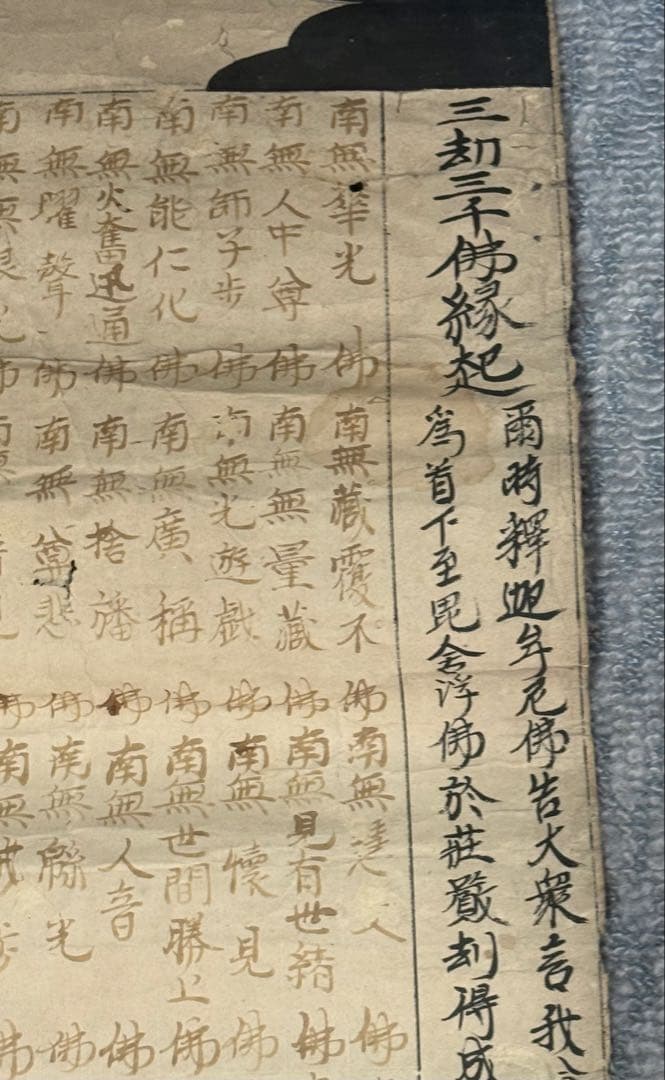 三刧三千佛縁起
爾時釋迦牟尼佛告大衆言我
爲首下至毘舎浮佛於莊嚴刧得成
南無華光佛南無藏覆不佛南無
南無人中尊佛南無無量藏佛南無見有世結佛
南無師子步佛南無光遊戲佛南無懷見佛
南無能仁化佛南無廣稱佛南無世間勝上佛
南無炎奮迅通佛南無捨旛佛南無人音佛
南無曜聲佛南無尊悲佛南無緜光佛